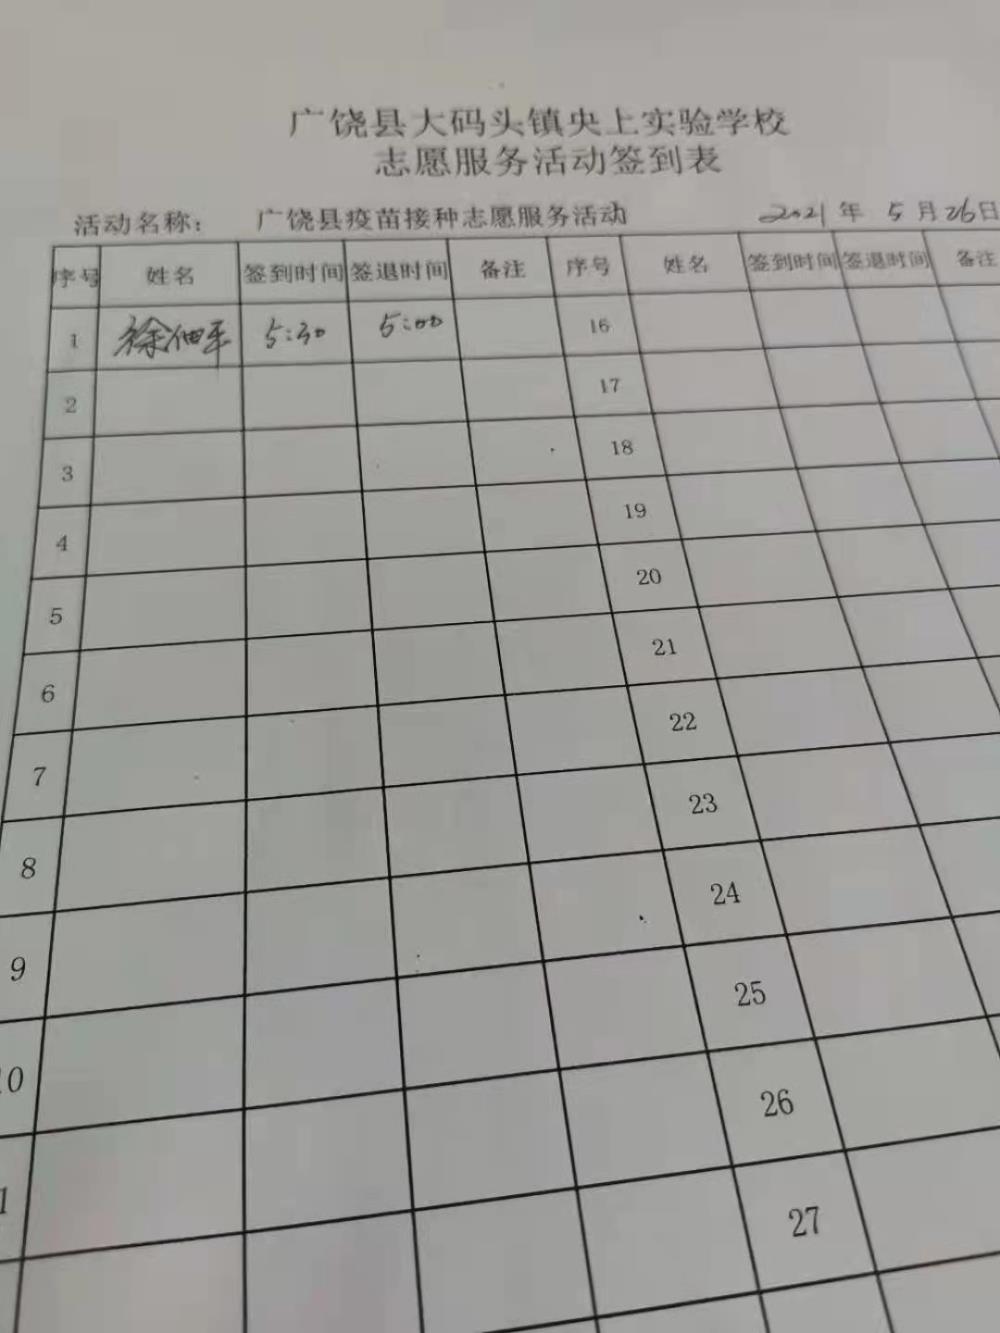 广饶县大码头镇央上实验学校
志愿服务活动签到表
活动名称： 广饶县疫苗接种志愿服务活动 2021年 5月26日
序号 姓名 签到时间 签退时间 备注 序号 姓名 签到时间 签退时间 备注
1 5:30 5:00 16
2 17
3 18
4 19
5 20
6 21
7 22
8 23
9 24
10 25
11 26
27